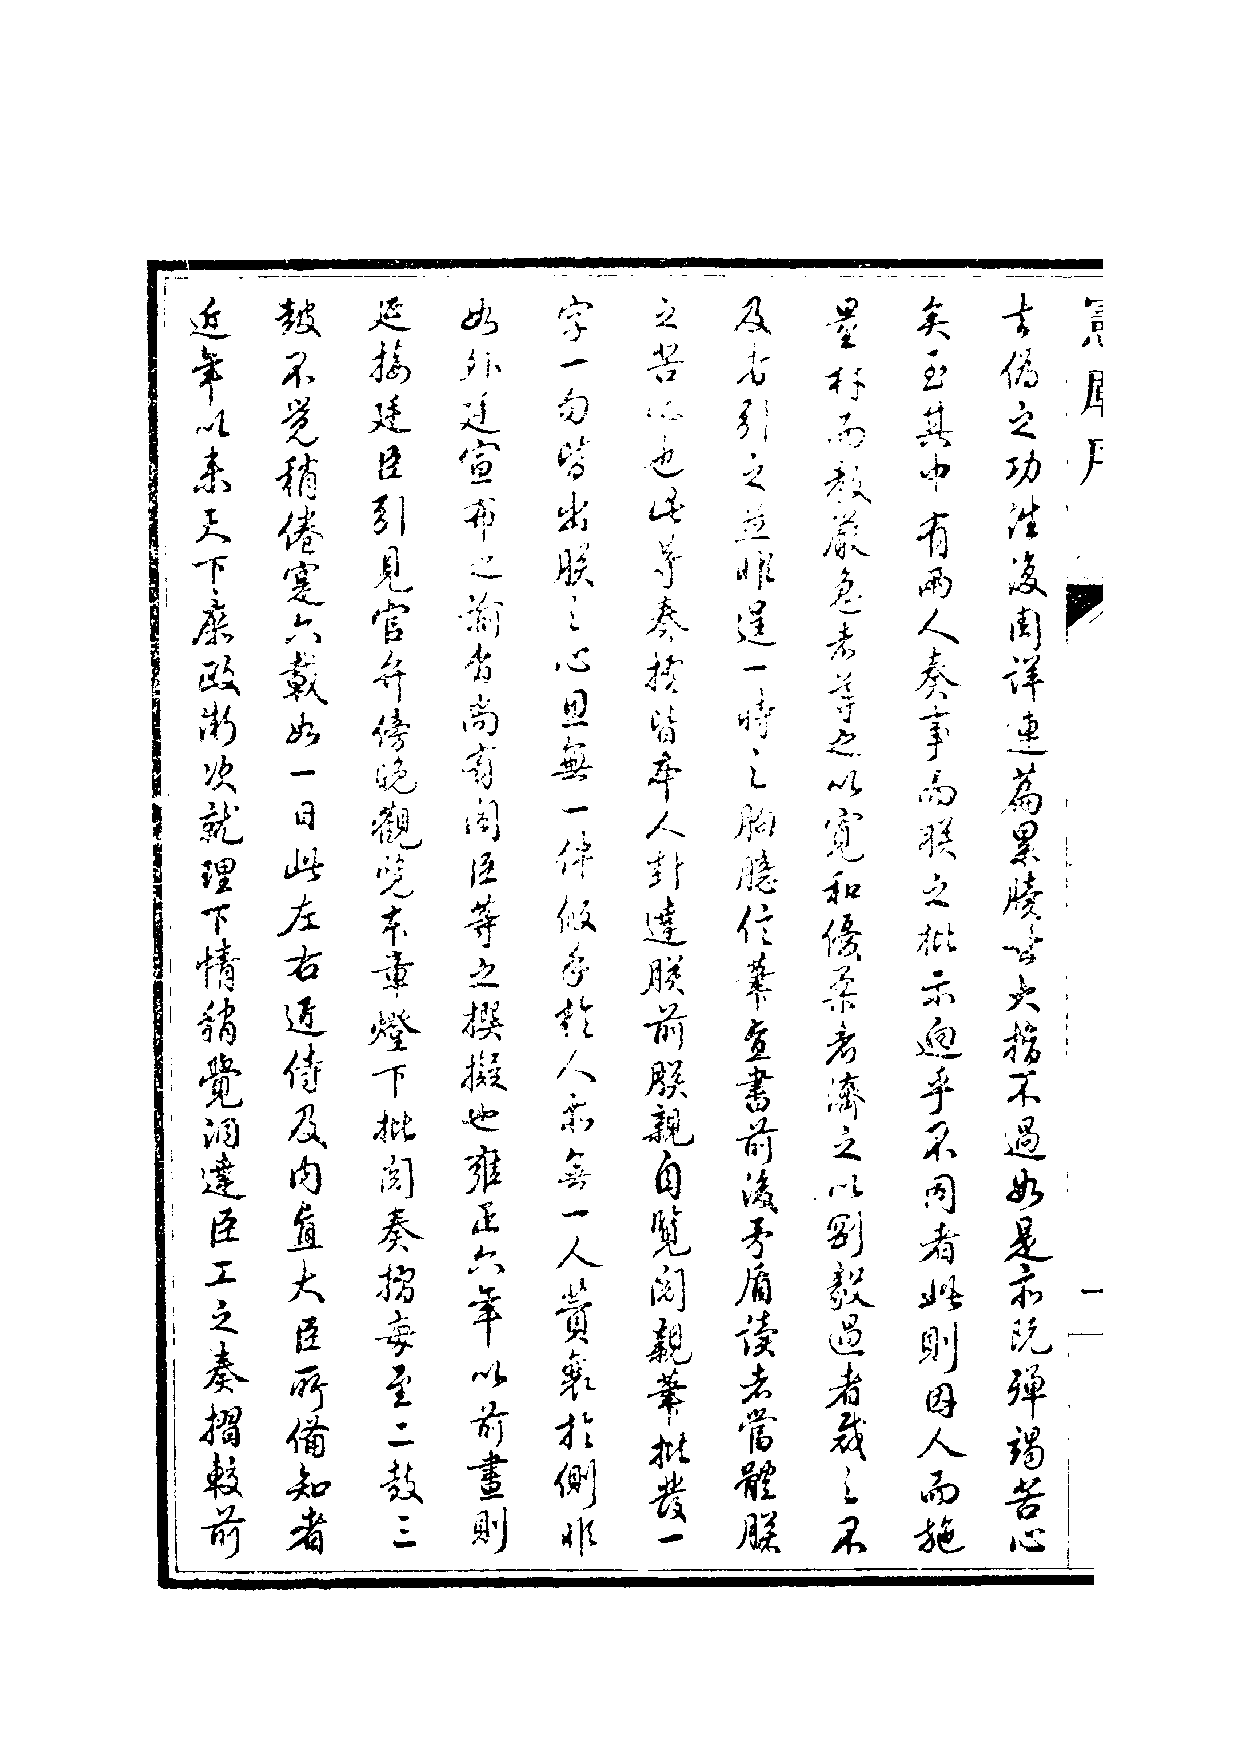 去偽之功往復周詳連篇累牘其大指不過如是亦既殫竭苦心
矣至其中有兩人奏事而朕之批示迥乎不同者此則因人而施
量材而教嚴急者導之以寬和優柔者濟之以剛毅過者裁之不
及者引之並非逞一時之胸臆信筆直書前後矛盾讀者當體朕
之苦心也此等奏摺皆本人封達朕前朕親自覽閱親筆批發一
字一句皆出朕之心思無一件假手於人亦無一人贊襄於側非
如外廷宣布之諭旨尚有閣臣等之撰擬也雍正六年以前晝則
延接廷臣引見官弁傍晚觀覽本章燈下批閱奏摺每至二鼓三
鼓不覺稍倦寔六載如一日此左右近侍及內直大臣所備知者
近年以來天下庶政漸次就理下情稍覺洞達臣工之奏摺較前